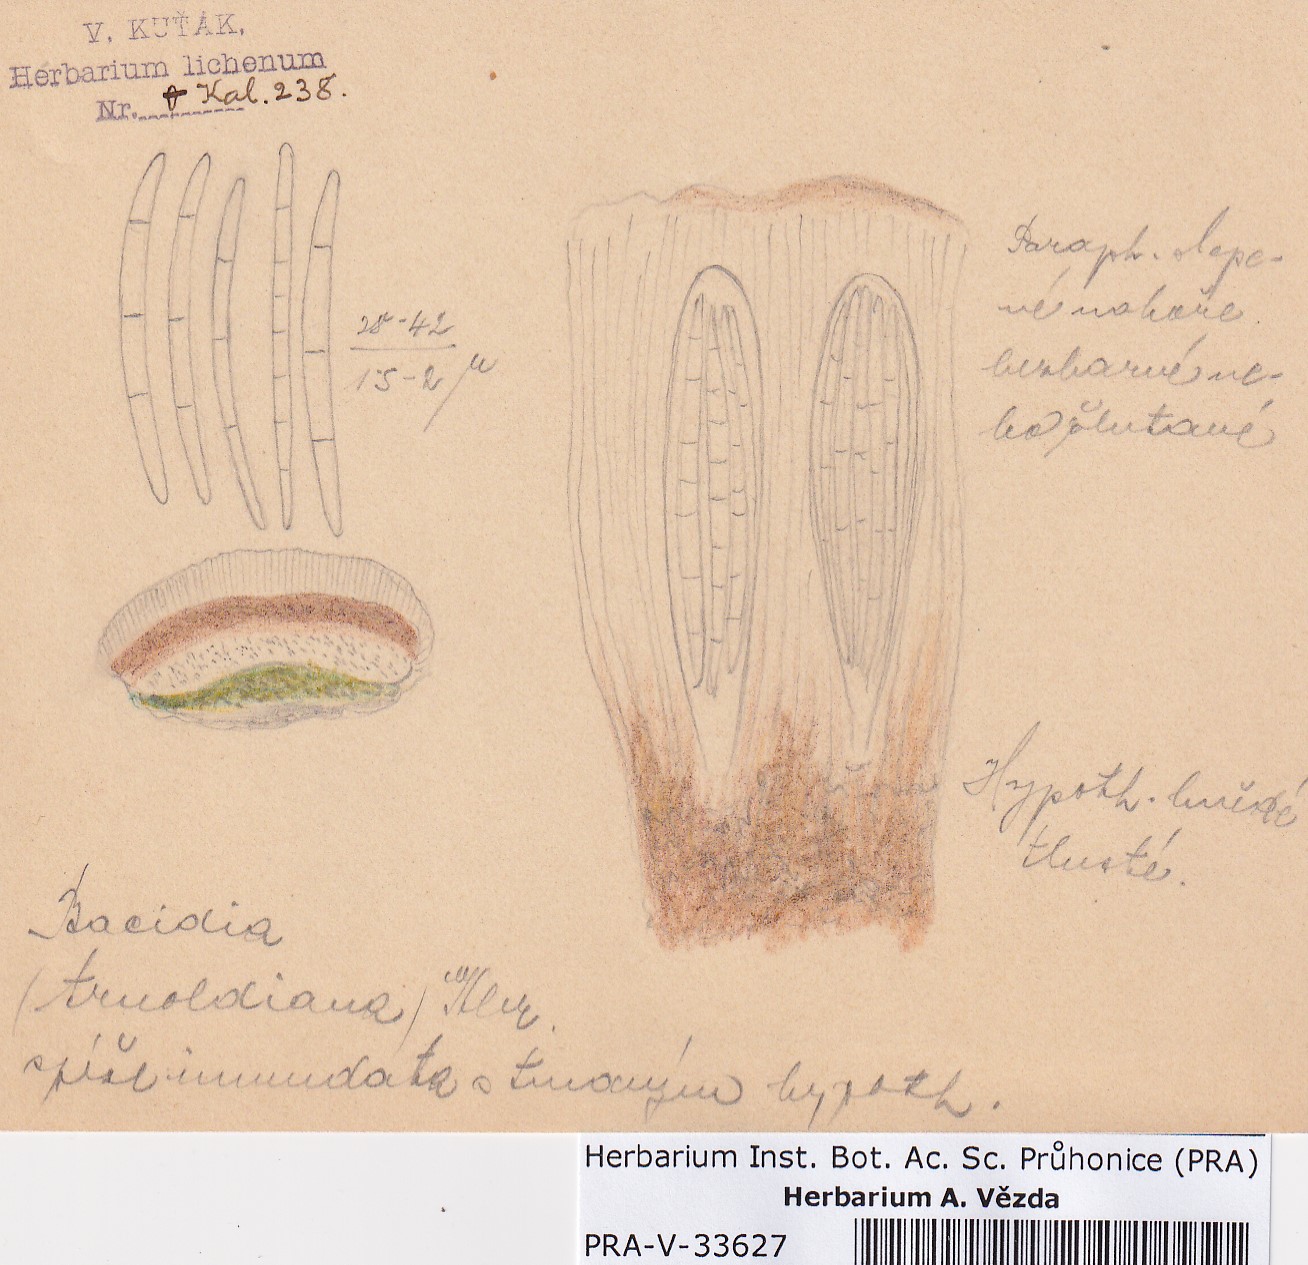 V. KUŤÁK.
Herbarium lichenum
Nr. Kal. 238.
28-42
15-2 μ
Paraph. slepe-
né nahoře
bezbarvé ne-
bo žlutavé
Hypoth. hnědé
tlusté.
Bacidia
(Arnoldiana) Kbr.
spíše immundata s tmavým hypoth.
Herbarium Inst. Bot. Ac. Sc. Průhonice (PRA)
Herbarium A. Vězda
PRA-V-33627